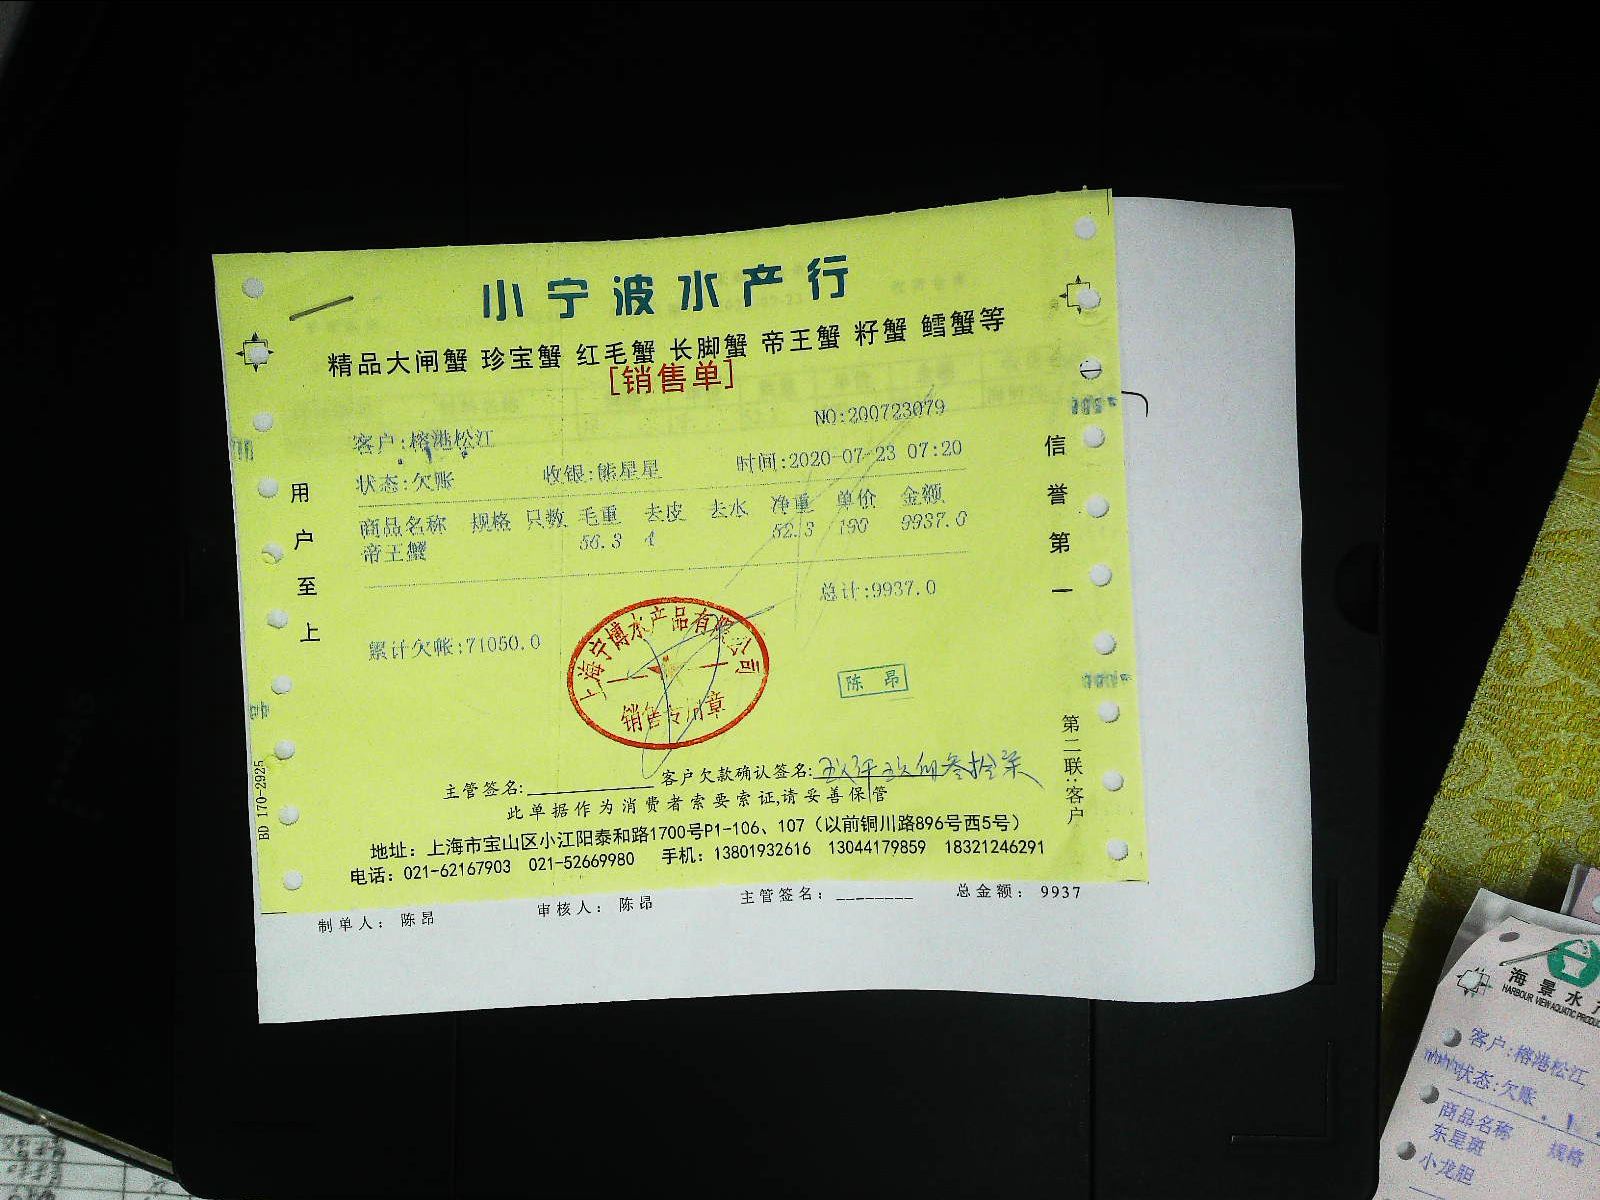 小宁波水产行
精品大闸蟹 珍宝蟹 红毛蟹 长脚蟹 帝王蟹 籽蟹 鳕蟹等
[销售单]
NO:200723079
客户:榕港松江
状态:欠账 收银:熊星星 时间:2020-07-23 07:20
商品名称 规格 只数 毛重 去皮 去水 净重 单价 金额
帝王蟹 56.3 4 52.3 190 9937.0
总计:9937.0
累计欠帐:71050.0
上海宁博水产品有限公司
销售专用章
陈昂
用户至上
信誉第一
第二联:客户
BD 170-2925
主管签名: 客户欠款确认签名:玖仟玖佰叁拾柒
此单据作为消费者索要索证,请妥善保管
地址：上海市宝山区小江阳泰和路1700号P1-106、107（以前铜川路896号西5号）
电话：021-62167903 021-52669980 手机：13801932616 13044179859 18321246291
制单人： 陈昂 审核人： 陈昂 主管签名：________ 总金额： 9937
海景水
HARBOUR VIEW AQUATIC
客户:榕港松江
状态:欠账
商品名称 规格
东星斑
小龙胆